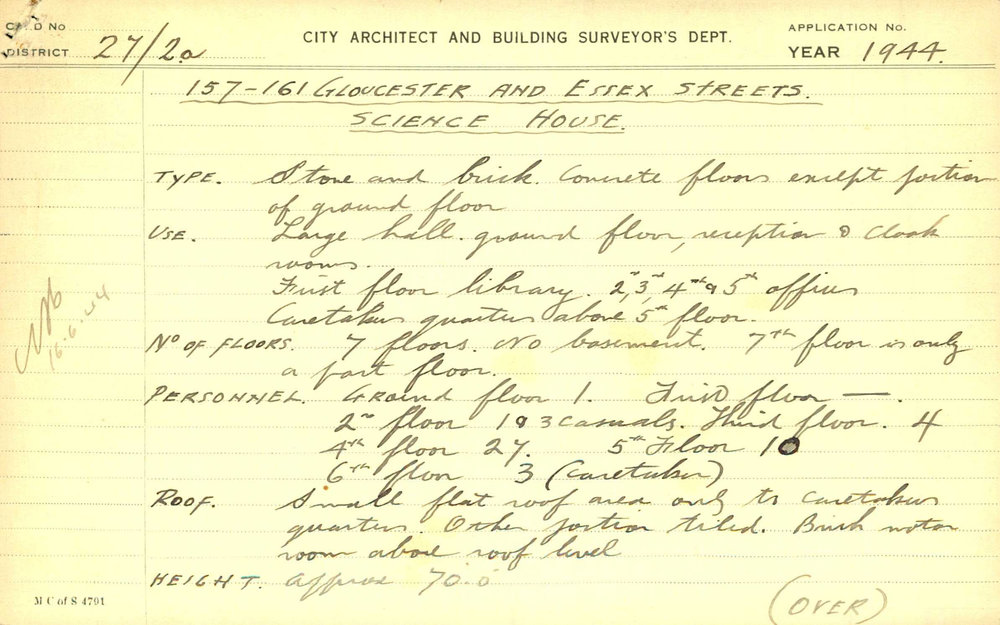 CARD No
DISTRICT 27/2a
CITY ARCHITECT AND BUILDING SURVEYOR'S DEPT.
APPLICATION No.
YEAR 1944.
157-161 GLOUCESTER AND ESSEX STREETS.
SCIENCE HOUSE.
TYPE. Stone and brick. Concrete floors except portion
of ground floor
USE. Large hall. ground floor, reception & cloak
rooms.
First floor library. 2nd, 3rd, 4th & 5th offices
Caretakers quarters above 5th floor.
No OF FLOORS. 7 floors. No basement. 7th floor is only
a part floor.
PERSONNEL. Ground floor 1. First floor —.
2nd floor 1 & 3 casuals. Third floor. 4
4th floor 27. 5th Floor 10
6th floor 3 (Caretaker)
ROOF. Small flat roof area only to caretakers
quarters. Other portion tiled. Brick motor
room above roof level
HEIGHT. Approx 70.0
16.6.44
M C of S 4791
(OVER)